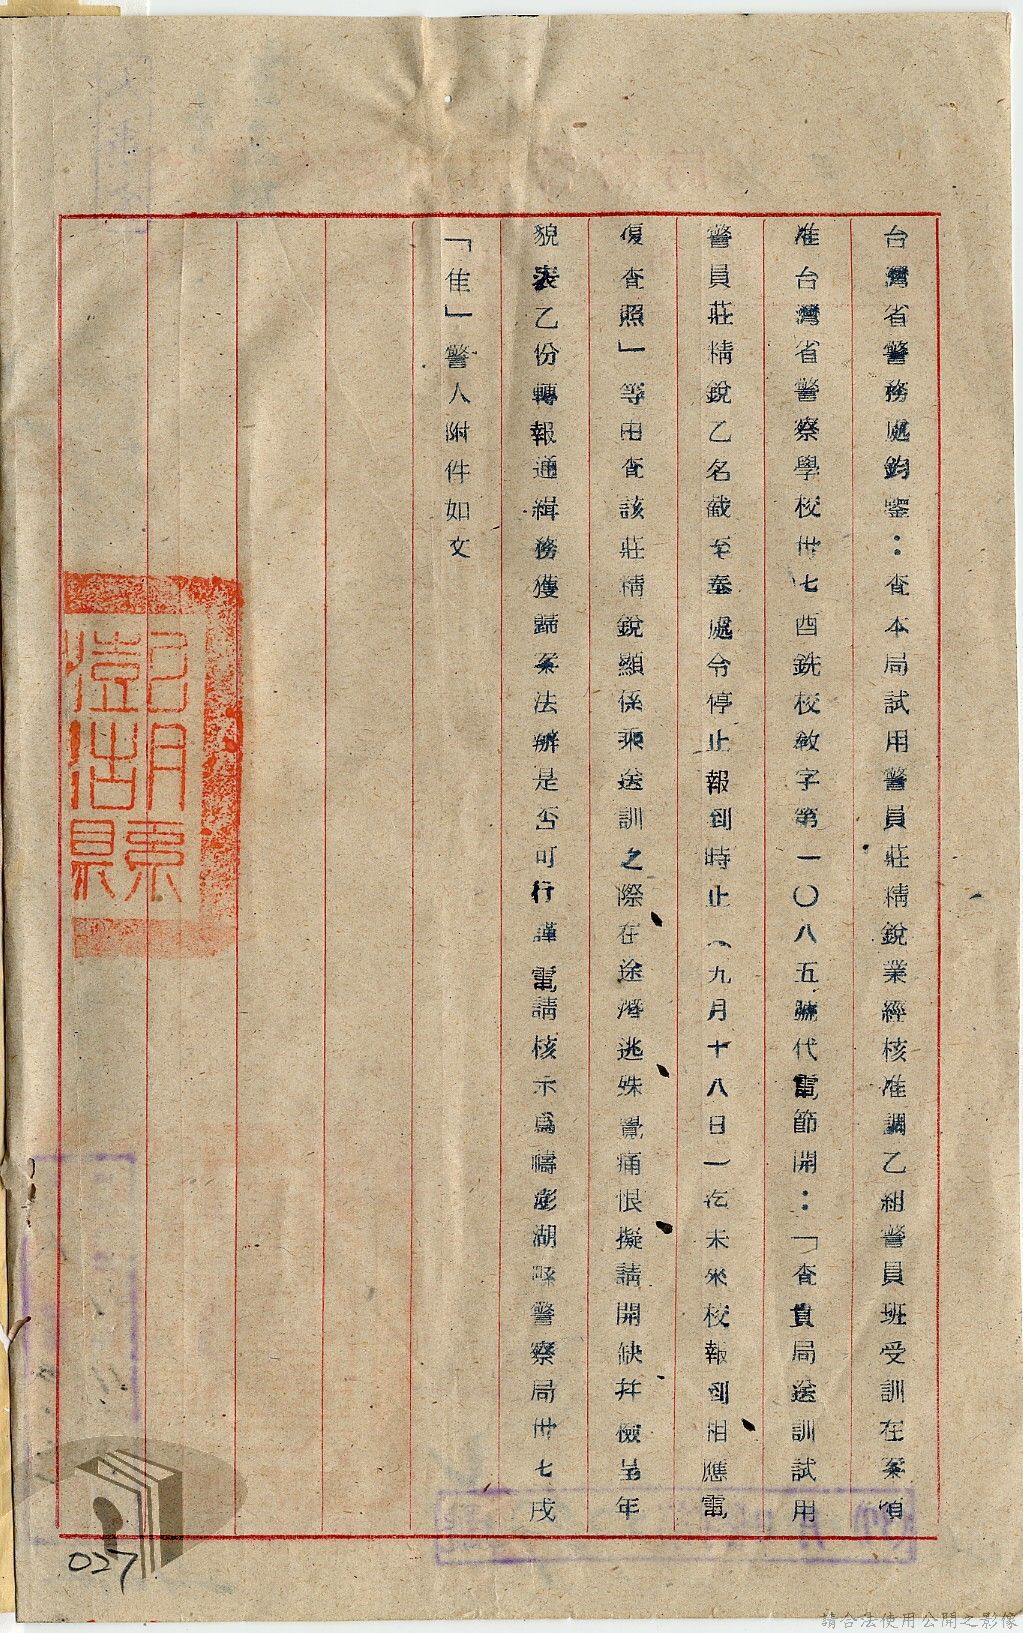 台灣省警務處鈞鑒：查本局試用警員莊精銳業經核准調乙組警員班受訓在案頃
准台灣省警察學校卅七酉銑校敏字第一〇八五號代電節開：「查貴局送訓試用
警員莊精銳乙名截至奉處令停止報到時止（九月十八日）迄未來校報到相應電
復查照」等由查該莊精銳顯係乘送訓之際在途潛逃殊覺痛恨擬請開缺并檢呈年
貌表乙份轉報通緝務獲歸案法辦是否可行謹電請核示爲禱澎湖縣警察局卅七戌
「隹」警人附件如文
澎湖縣
027
請合法使用公開之影像